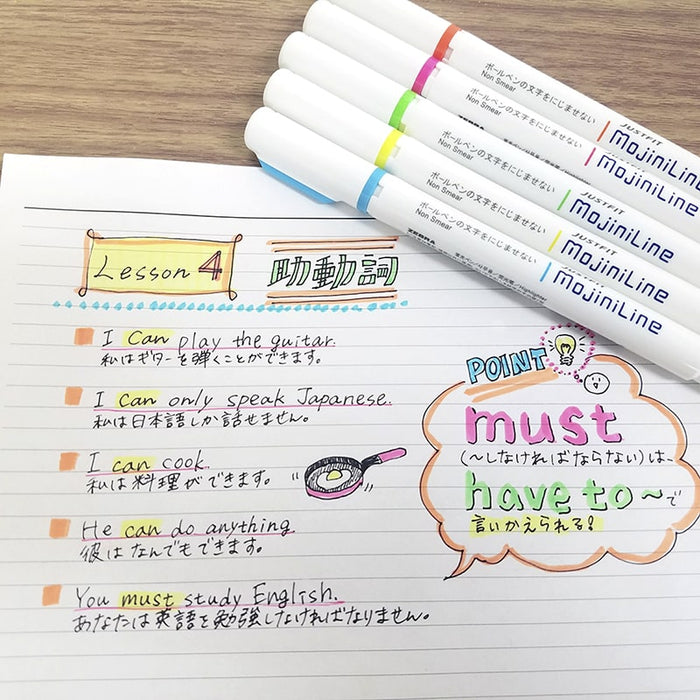 ボールペンの文字をにじませない
Non Smear
JUSTFIT
MojiniLine
ボールペンの文字をにじませない
Non Smear
JUSTFIT
MojiniLine
ボールペンの文字をにじませない
Non Smear
JUSTFIT
MojiniLine
ボールペンの文字をにじませない
Non Smear
JUSTFIT
MojiniLine
ボールペンの文字をにじませない
Non Smear
ZEBRA
MojiniLine
Lesson 4
助動詞
I can play the guitar.
私はギターを弾くことができます。
I can only speak Japanese.
私は日本語しか話せません。
I can cook.
私は料理ができます。
He can do anything.
彼はなんでもできます。
You must study English.
あなたは英語を勉強しなければなりません。
POINT
must
(〜しなければならない)は、
have to 〜で
言いかえられる!